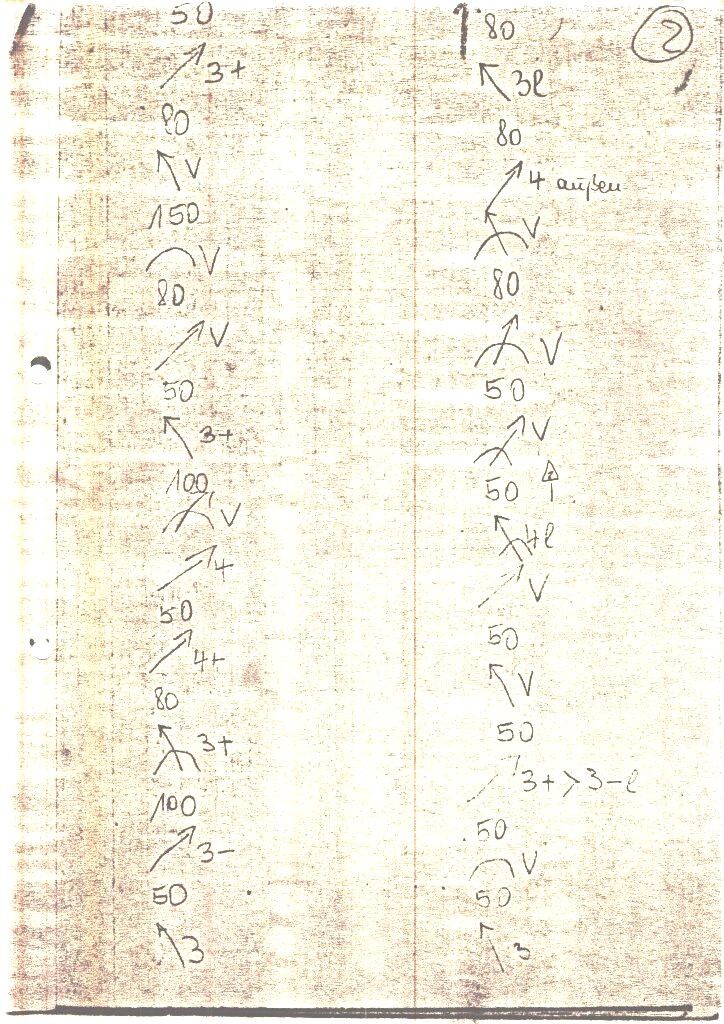 50
3+
80
V
150
V
80
V
50
3+
100
V
4
50
4+
80
3+
100
3-
50
3
2
80
3l
80
4 außen
V
80
V
50
V
50
4l
V
50
V
50
3+>3-l
50
V
50
3